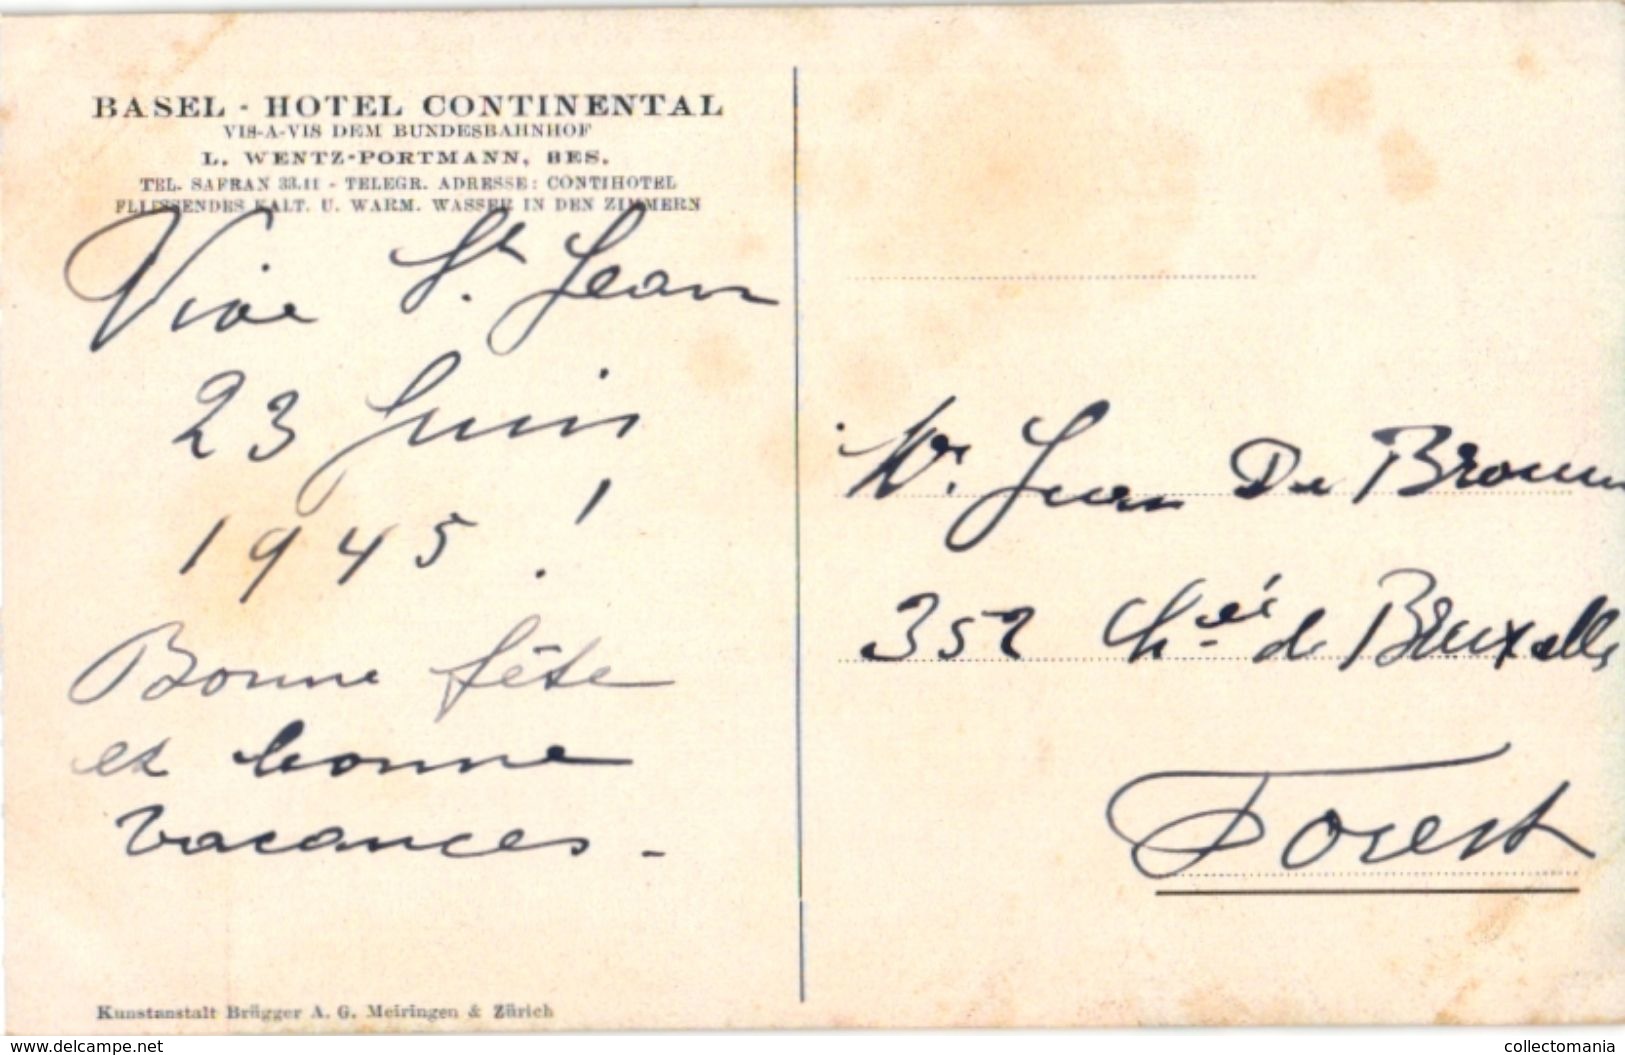 BASEL - HOTEL CONTINENTAL
VIS-A-VIS DEM BUNDESBAHNHOF
L. WENTZ-PORTMANN, BES.
TEL. SAFRAN 33.11 - TELEGR. ADRESSE: CONTIHOTEL
FLIESSENDES KALT. U. WARM. WASSER IN DEN ZIMMERN
Vive St Jean
23 Juin
1945 !
Bonne fête
et bonne
vacances -
Mr. Jean De Brouw
352 Chée de Bruxelles
Forest
Kunstanstalt Brügger A. G. Meiringen & Zürich
www.delcampe.net
collectomania